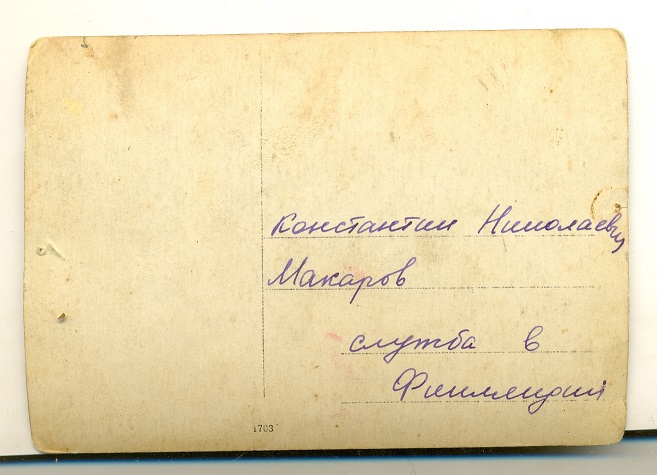 Константин Николаевич
Макаров
служба в
Финляндии
1703